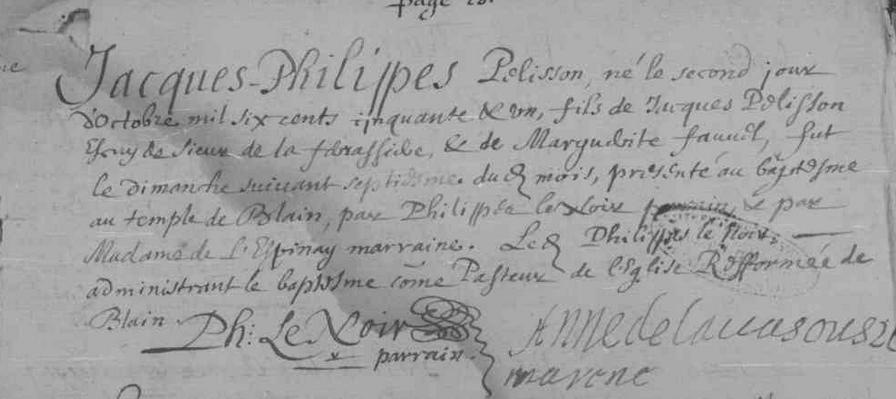 page
Jacques-Philippes Pelisson, né le second jour
d'Octobre mil six cents cinquante & un, fils de Jacques Pelisson
Escuyer Sieur de la & de Marguerite fauvel, fut
le dimanche suivant septiesme du mois, presenté au baptesme
au temple de Blain, par Philippes le Noir parrain, & par
Madame de L'Espinay marraine. Led Philippes le Noir,
administrant le baptesme come Pasteur de l'Eglise Refformée de
Blain. Ph: Le Noir Anne de
parrain. marene